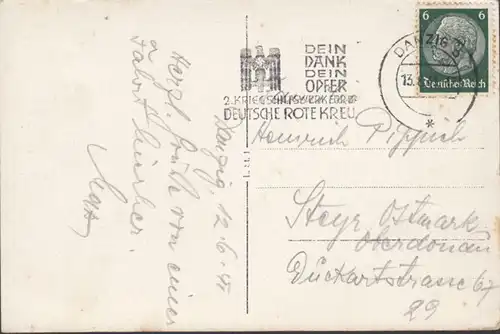 DEIN
DANK
DEIN
OPFER
2. KRIEGSHILFSWERK FÜR DAS
DEUTSCHE ROTE KREU
DANZIG
13.
6
6
Deutsches Reich
Danzig, 12.6.41
Herzl. Grüße von einer
Fahrt hierher.
Heinrich Pippich
Steyr Ostmark
Oberdonau
29